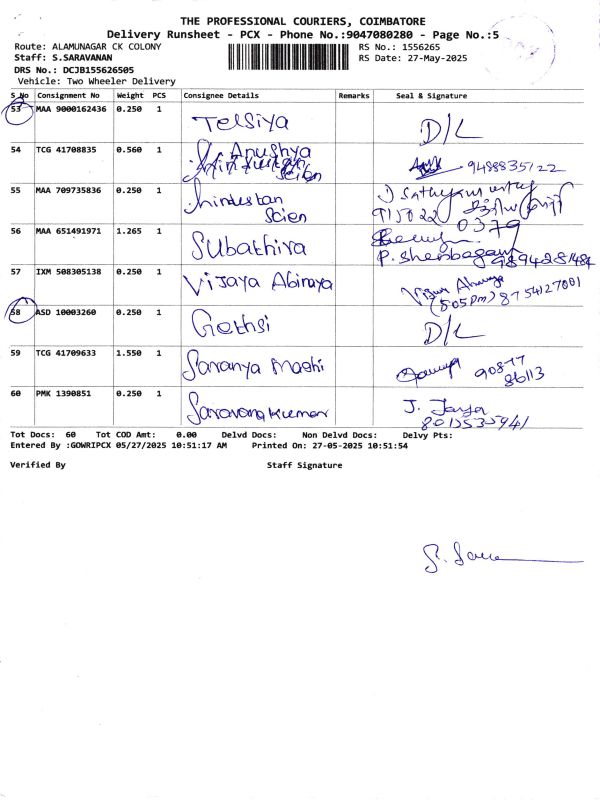 THE PROFESSIONAL COURIERS, COIMBATORE
Delivery Runsheet - PCX - Phone No.:9047080280 - Page No.:5
Route: ALAMUNAGAR CK COLONY
RS No.: 1556265
Staff: S.SARAVANAN
RS Date: 27-May-2025
DRS No.: DCJB155626505
Vehicle: Two Wheeler Delivery
S_No Consignment No Weight PCS Consignee Details Remarks Seal & Signature
53 MAA 9000162436 0.250 1 Telsiya D/L
54 TCG 41708835 0.560 1 Anushya 9488835122
55 MAA 709735836 0.250 1 hindustan
Scien
56 MAA 651491971 1.265 1 Subathira 0379
P. Shenbagam 9894281484
57 IXM 508305138 0.250 1 Vijaya Abinaya
(8.05pm) 8754127001
58 ASD 10003260 0.250 1 Gethsi D/L
59 TCG 41709633 1.550 1 Saranya 90877
86113
60 PMK 1390851 0.250 1 Saravanakumar J.
8015535941
Tot Docs: 60 Tot COD Amt: 0.00 Delvd Docs: Non Delvd Docs: Delvy Pts:
Entered By :GOWRIPCX 05/27/2025 10:51:17 AM Printed On: 27-05-2025 10:51:54
Verified By Staff Signature